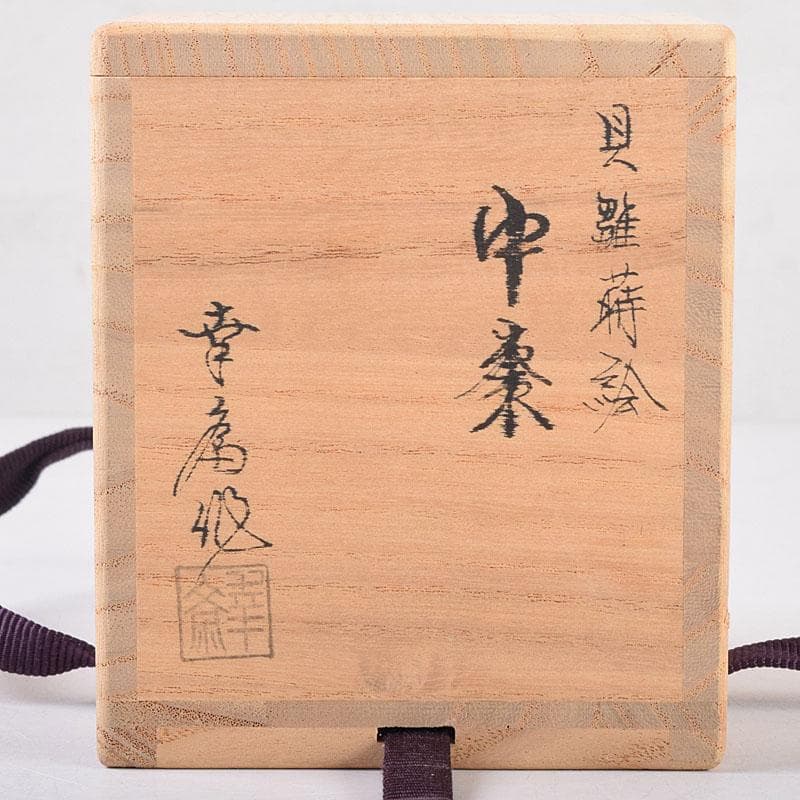 貝雛蒔絵
中棗
幸斎作